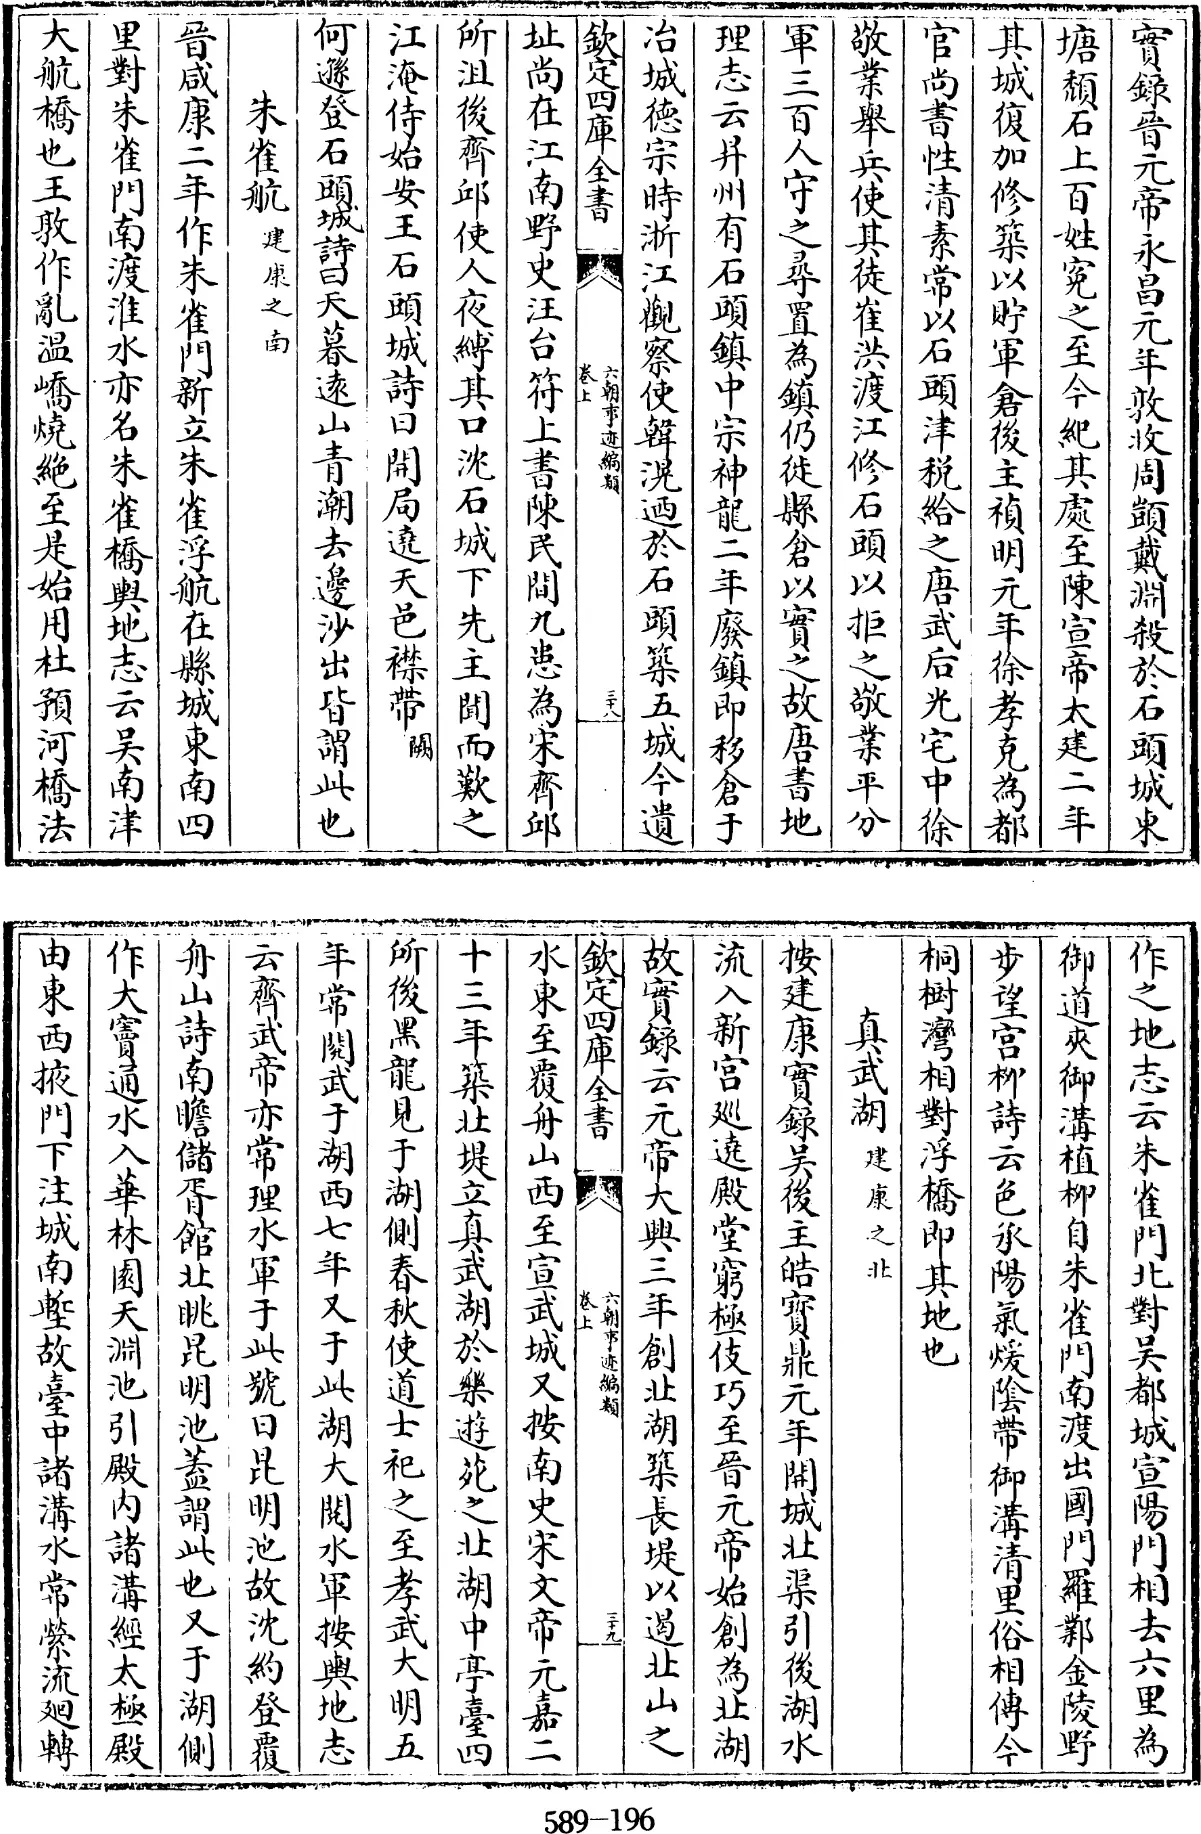 實録晉元帝永昌元年敦收周顗戴淵殺於石頭城東
塘頹石上百姓寃之至今紀其處至陳宣帝太建二年
其城復加修築以貯軍倉後主禎明元年徐孝克為都
官尚書性清素常以石頭津税給之唐武后光宅中徐
敬業舉兵使其徒崔洪渡江修石頭以拒之敬業平分
軍三百人守之尋置為鎮仍徙縣倉以實之故唐書地
理志云昇州有石頭鎮中宗神龍二年廢鎮即移倉于
冶城德宗時浙江觀察使韓滉迺於石頭築五城今遺
欽定四庫全書
六朝事迹編類
卷上
三十八
址尚在江南野史汪台符上書陳民間九患為宋齊邱
所沮後齊邱使人夜縛其口沈石城下先主聞而歎之
江淹侍始安王石頭城詩曰開局遶天邑襟帶闕
何遜登石頭城詩曰天暮遠山青潮去邊沙出皆謂此也
朱雀航建康之南
晉咸康二年作朱雀門新立朱雀浮航在縣城東南四
里對朱雀門南渡淮水亦名朱雀橋輿地志云吴南津
大航橋也王敦作亂温嶠燒絶至是始用杜預河橋法
作之地志云朱雀門北對吴都城宣陽門相去六里為
御道夾御溝植柳自朱雀門南渡出國門羅鄴金陵野
步望宫柳詩云色承陽氣煖陰帶御溝清里俗相傳今
桐樹灣相對浮橋即其地也
真武湖建康之北
按建康實録吴後主皓寳鼎元年開城北渠引後湖水
流入新宫廵遶殿堂窮極伎巧至晉元帝始創為北湖
故實録云元帝大興三年創北湖築長堤以遏北山之
欽定四庫全書
六朝事迹編類
卷上
三十九
水東至覆舟山西至宣武城又按南史宋文帝元嘉二
十三年築北堤立真武湖於樂遊苑之北湖中亭臺四
所後黑龍見于湖側春秋使道士祀之至孝武大明五
年常閱武于湖西七年又于此湖大閱水軍按輿地志
云齊武帝亦常理水軍于此號曰昆明池故沈約登覆
舟山詩南瞻儲胥館北眺昆明池蓋謂此也又于湖側
作大竇通水入華林園天淵池引殿内諸溝經太極殿
由東西掖門下注城南塹故臺中諸溝水常縈流廻轉
589-196